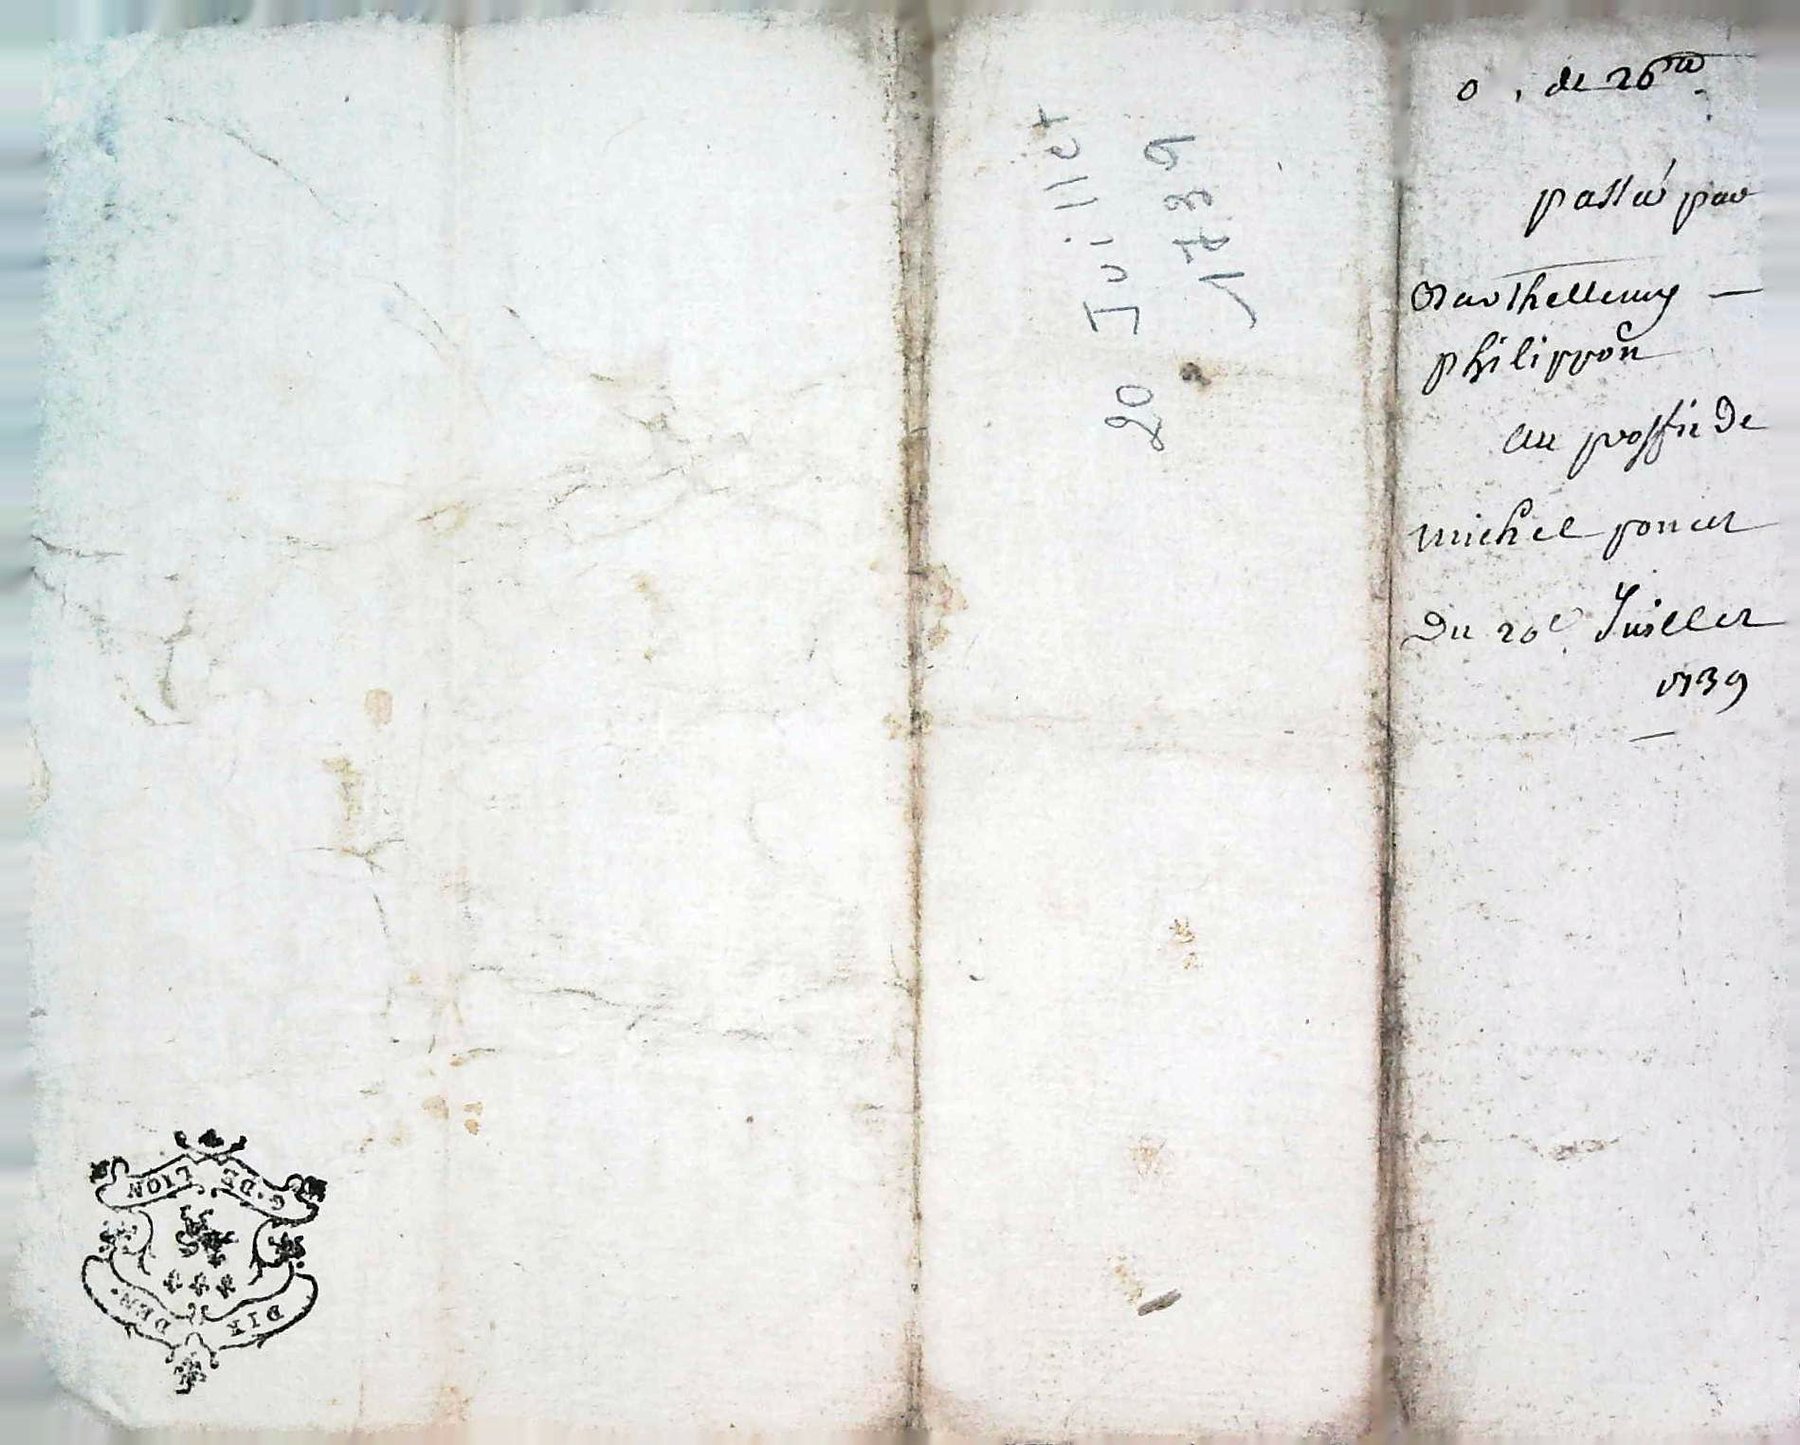 o, de 26ᵗᵗ.
passéé par
Barthellemy —
philippon
au proffit De
michel poncet
Du 20ᵉ. Juillet
1739
20 Juillet
1739
G. DE LION
DIX DEN.